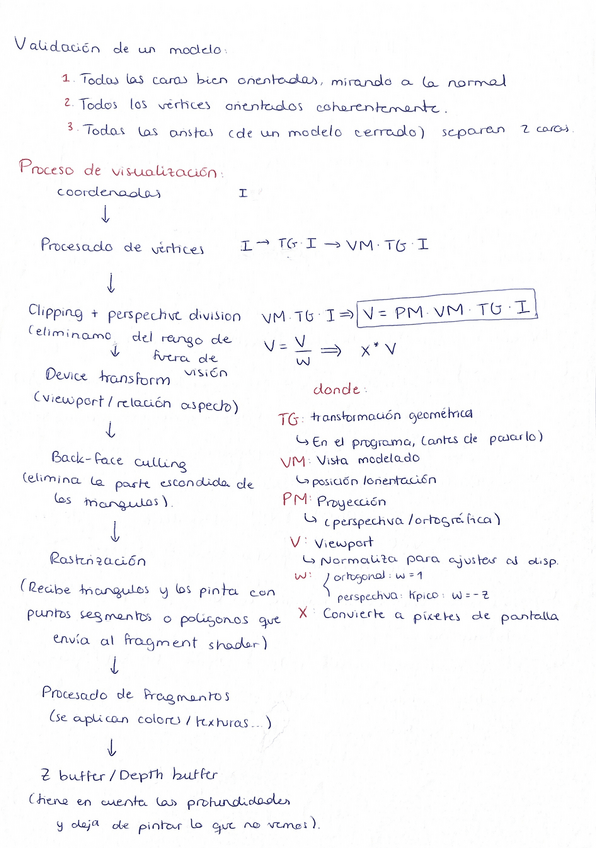 Validación de un modelo:
1. Todas las caras bien orientadas, mirando a la normal
2. Todos los vértices orientados coherentemente.
3. Todas las aristas (de un modelo cerrado) separan 2 caras.
Proceso de visualización:
coordenadas I
↓
Procesado de vértices I → TG·I → VM·TG·I
↓
Clipping + perspective division VM·TG·I ⇒ V = PM·VM·TG·I
(eliminamo del rango de
fuera de
visión
V = V/w ⇒ X*V
↓
Device transform
(viewport/relación aspecto)
↓
Back-face culling
(elimina la parte escondida de
los triangulos).
↓
Rasterización
(Recibe triangulos y los pinta con
puntos segmentos o poligonos que
envía al fragment shader)
↓
Procesado de fragmentos
(se aplican colores/texturas...)
↓
Z buffer/Depth buffer
(tiene en cuenta las profundidades
y deja de pintar lo que no vemos).
donde:
TG: transformación geométrica
↳ En el programa, (antes de pasarlo)
VM: Vista modelado
↳ posición/orientación
PM: Proyección
↳ (perspectiva/ortográfica)
V: Viewport
↳ Normaliza para ajustar al disp.
w: ortogonal: w=1
perspectiva: típico: w=-z
X: Convierte a píxeles de pantalla